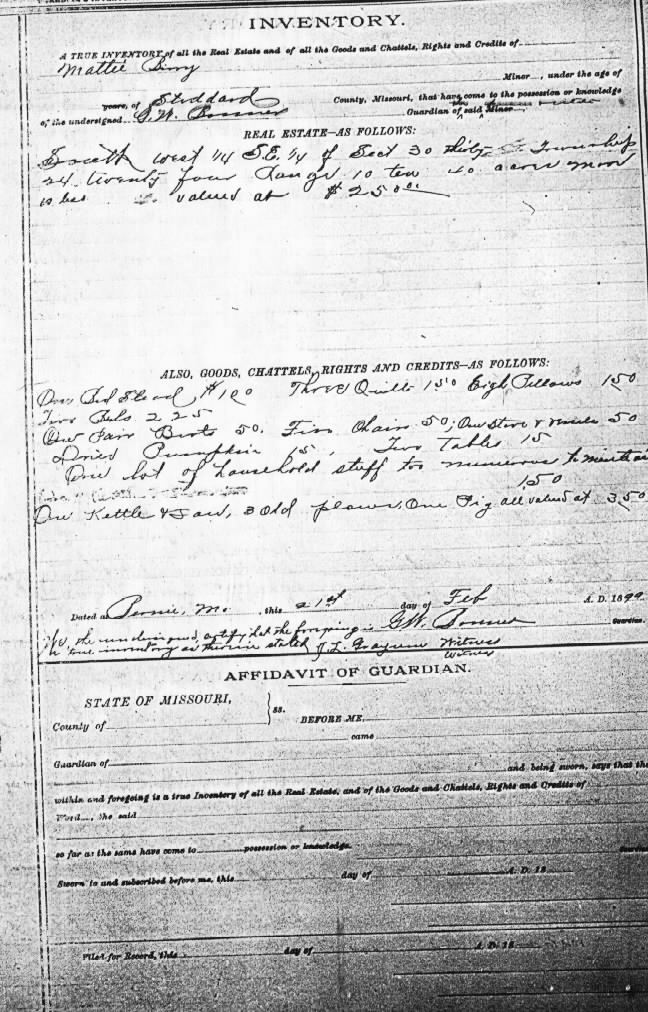 INVENTORY.
A TRUE INVENTORY of all the Real Estate and of all the Goods and Chattels, Rights and Credits of
Mattie
Minor, under the age of
years, of Stoddard County, Missouri, that have come to the possession or knowledge
of the undersigned G. W. Bonner Guardian of said Minor
REAL ESTATE—AS FOLLOWS:
South West 1/4 S.E. 1/4 of Sect 30 thirty Township
24 twenty four Range 10 ten 40 acres more
or less valued at $250.00
ALSO, GOODS, CHATTELS, RIGHTS AND CREDITS—AS FOLLOWS:
One Bed Stead $1.00 Three Quilts 1.50 Eight Pillows 1.50
Two Beds 2.25
One Pair Boots 50; Five Chairs 50; One Stove & 50
Dried Pumpkin 15, Two Tables 15
One lot of household stuff too numerous to mention
1.50
One Kettle & Saw, 3 old plows, One Pig all valued at 3.50
Dated at Bernie, Mo. this 21st day of Feb A. D. 1899
We, the undersigned, certify that the foregoing is G. W. Bonner Guardian.
a true inventory as therein stated J. L. Witness
Witness
AFFIDAVIT OF GUARDIAN.
STATE OF MISSOURI,
County of ss. BEFORE ME,
came
Guardian of
and being sworn, says that the
within and foregoing is a true Inventory of all the Real Estate, and of the Goods and Chattels, Rights and Credits of
Ward, the said
so far as the same have come to possession or knowledge.
Guardian
Sworn to and subscribed before me, this day of A. D. 18
Filed for Record, this day of A. D. 18